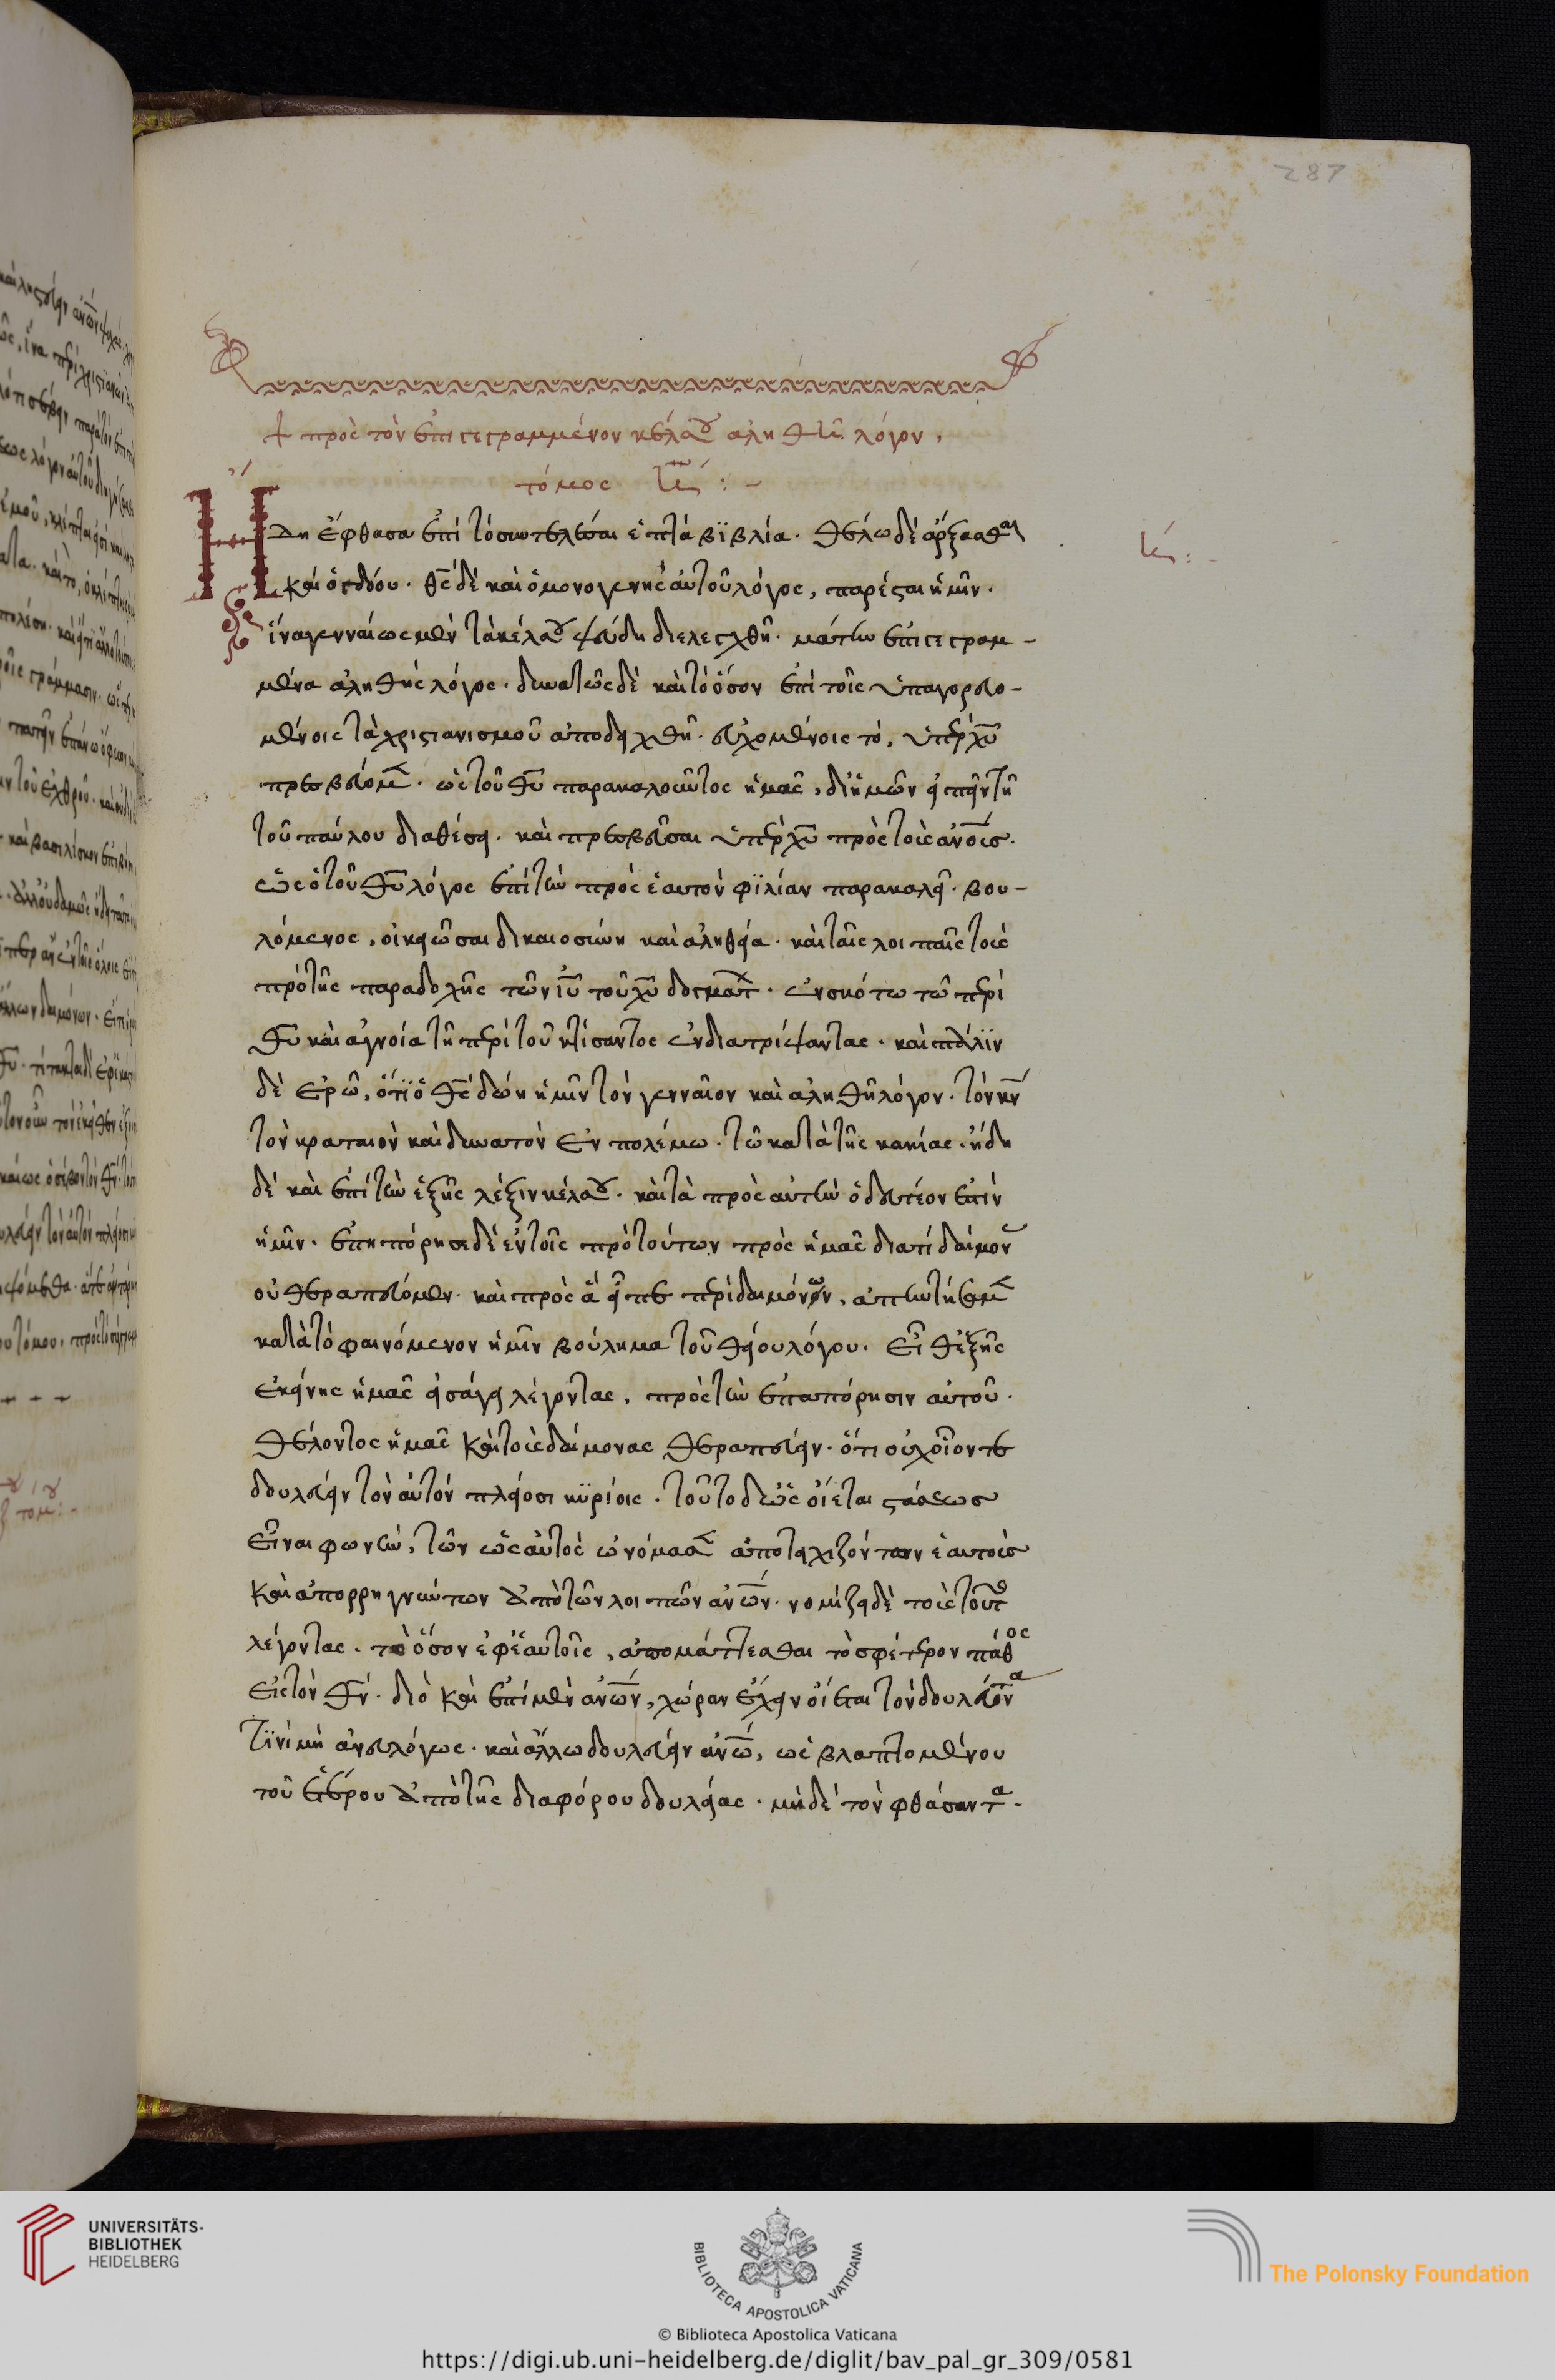 287
+ πρὸς τὸν ἐπιγεγραμμένον κέλσου ἀληθῆ λόγον,
τόμος η´ : -
Ἤδη ἔφθασα ἐπὶ τὸ συντελέσαι ἑπτὰ βϊβλία. θέλω δὲ ἄρξασθαι
η´ : -
καὶ ὀγδόου. θς̅ δὲ καὶ ὁ μονογενὴς αὐτοῦ λόγος, παρέσται ἡμῖν.
ἵνα γενναίως μὲν τὰ κέλσου ψευδῆ διελεγχθῆ. μάτην ἐπιγεγραμ-
μένα ἀληθὴς λόγος. δυνατῶς δὲ καὶ τὸ ὅσον ἐπὶ τοῖς ὑπαγορευο-
μένοις τὰ χριστιανισμοῦ ἀποδειχθῆ. εὐχομένοις τὸ, ὑπὲρ χυ̅
πρεσβεύομεν. ὡς τοῦ θυ̅ παρακαλοῦντος ἡμᾶς, δι' ἡμῶν εἰπεῖν τῆ
τοῦ παύλου διαθέσει. καὶ πρεσβεῦσαι ὑπὲρ χυ̅ πρὸς τοὺς ἀνο̅υς.
ὡς ὁ τοῦ θυ̅ λόγος ἐπὶ τὴν πρὸς ἑαυτὸν φϊλίαν παρακαλεῖ. βου-
λόμενος, οἰκειῶσαι δικαιοσύνη καὶ ἀληθεία. καὶ ταῖς λοιπαῖς τοὺς
πρὸ τῆς παραδοχῆς τῶν ιυ̅ τοῦ χυ̅ δογμάτ. ἐν σκότω τῶ περὶ
θυ̅ καὶ ἀγνοία τῆ περὶ τοῦ κτίσαντος ἐνδιατρίψαντας. καὶ πάλϊν
δὲ ἐρῶ, ὅτϊ ὁ θς̅ δώη ἡμῖν τὸν γενναῖον καὶ ἀληθῆ λόγον. τὸν κν̅
τὸν κραταιὸν καὶ δυνατὸν ἐν πολέμω. τῶ κατὰ τῆς κακίας. ἤδη
δὲ καὶ ἐπὶ τὴν ἑξῆς λέξιν κέλσου. καὶ τὰ πρὸς αὐτὴν ὁδευτέον ἐστὶν
ἡμῖν. ἐπηπόρησε δὲ ἐν τοῖς πρὸ τούτων πρὸς ἡμᾶς διατί δαίμον
οὐ θεραπεύομεν. καὶ πρὸς ἃ εἶπε περὶ δαιμόνων, ἀπηντήσαμ
κατὰ τὸ φαινόμενον ἡμῖν βούλημα τοῦ θείου λόγου. εἶθ' ἑξῆς
ἐκείνης ἡμᾶς εἰσάγει λέγοντας, πρὸς τὴν ἐπαπόρησιν αὐτοῦ.
θέλοντος ἡμᾶς καὶ τοὺς δαίμονας θεραπεύειν. ὅτι οὐχ οἷόν τε
δουλεύειν τὸν αὐτὸν πλείοσι κϋρίοις. τοῦτο δ' ὡς οἴεται στάσεως
εἶναι φωνὴν, τῶν ὡς αὐτὸς ὠνόμασ ἀποτειχιζόντων ἑαυτοὺς
καὶ ἀπορρηγνύντων ἀπὸ τῶν λοιπῶν ἀνω̅ν. νομίζει δὲ τοὺς τοῦτ
λέγοντας. τὸ ὅσον ἐφ' ἑαυτοῖς, ἀπομάττεσθαι τὸ σφέτερον πάθος
εἰς τὸν θν̅. διὸ καὶ ἐπὶ μὲν ἀνω̅ν, χώραν ἔχειν οἴεται τὸν δουλεύοντα
τϊνὶ μὴ ἂν εὐλόγως. καὶ ἄλλω δουλεύειν ἀνω̅, ὡς βλαπτομένου
τοῦ ἑτέρου ἀπὸ τῆς διαφόρου δουλείας. μηδὲ τὸν φθάσαντα.
UNIVERSITÄTS-
BIBLIOTHEK
HEIDELBERG
BIBLIOTECA APOSTOLICA VATICANA
The Polonsky Foundation
© Biblioteca Apostolica Vaticana
https://digi.ub.uni-heidelberg.de/diglit/bav_pal_gr_309/0581